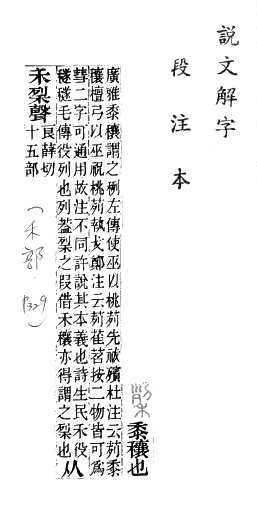 說文解字
段注本
黍穰也
廣雅黍穰謂之左傳使巫以桃茢先祓殯杜注云茢黍
穰檀弓以巫祝桃茢執戈鄭注云茢萑苕按二物皆可為
彗二字可通用故注不同許說其本義也詩生民禾役
穟穟毛傳役列也列蓋之叚借禾穰亦得謂之也从
禾聲
良薛切
十五部
(禾部.
P329)